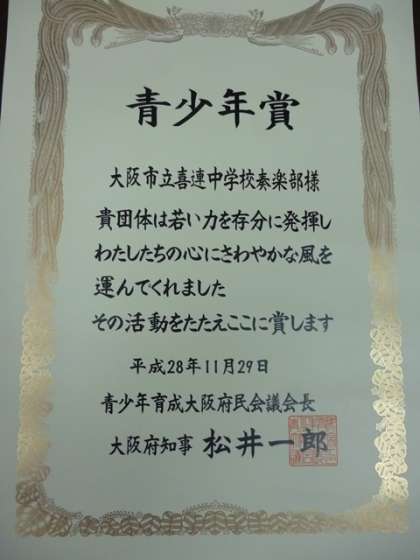 青少年賞
大阪市立喜連中学校奏楽部様
貴団体は若い力を存分に発揮し
わたしたちの心にさわやかな風を
運んでくれました
その活動をたたえここに賞します
平成28年11月29日
青少年育成大阪府民会議会長
大阪府知事 松井一郎